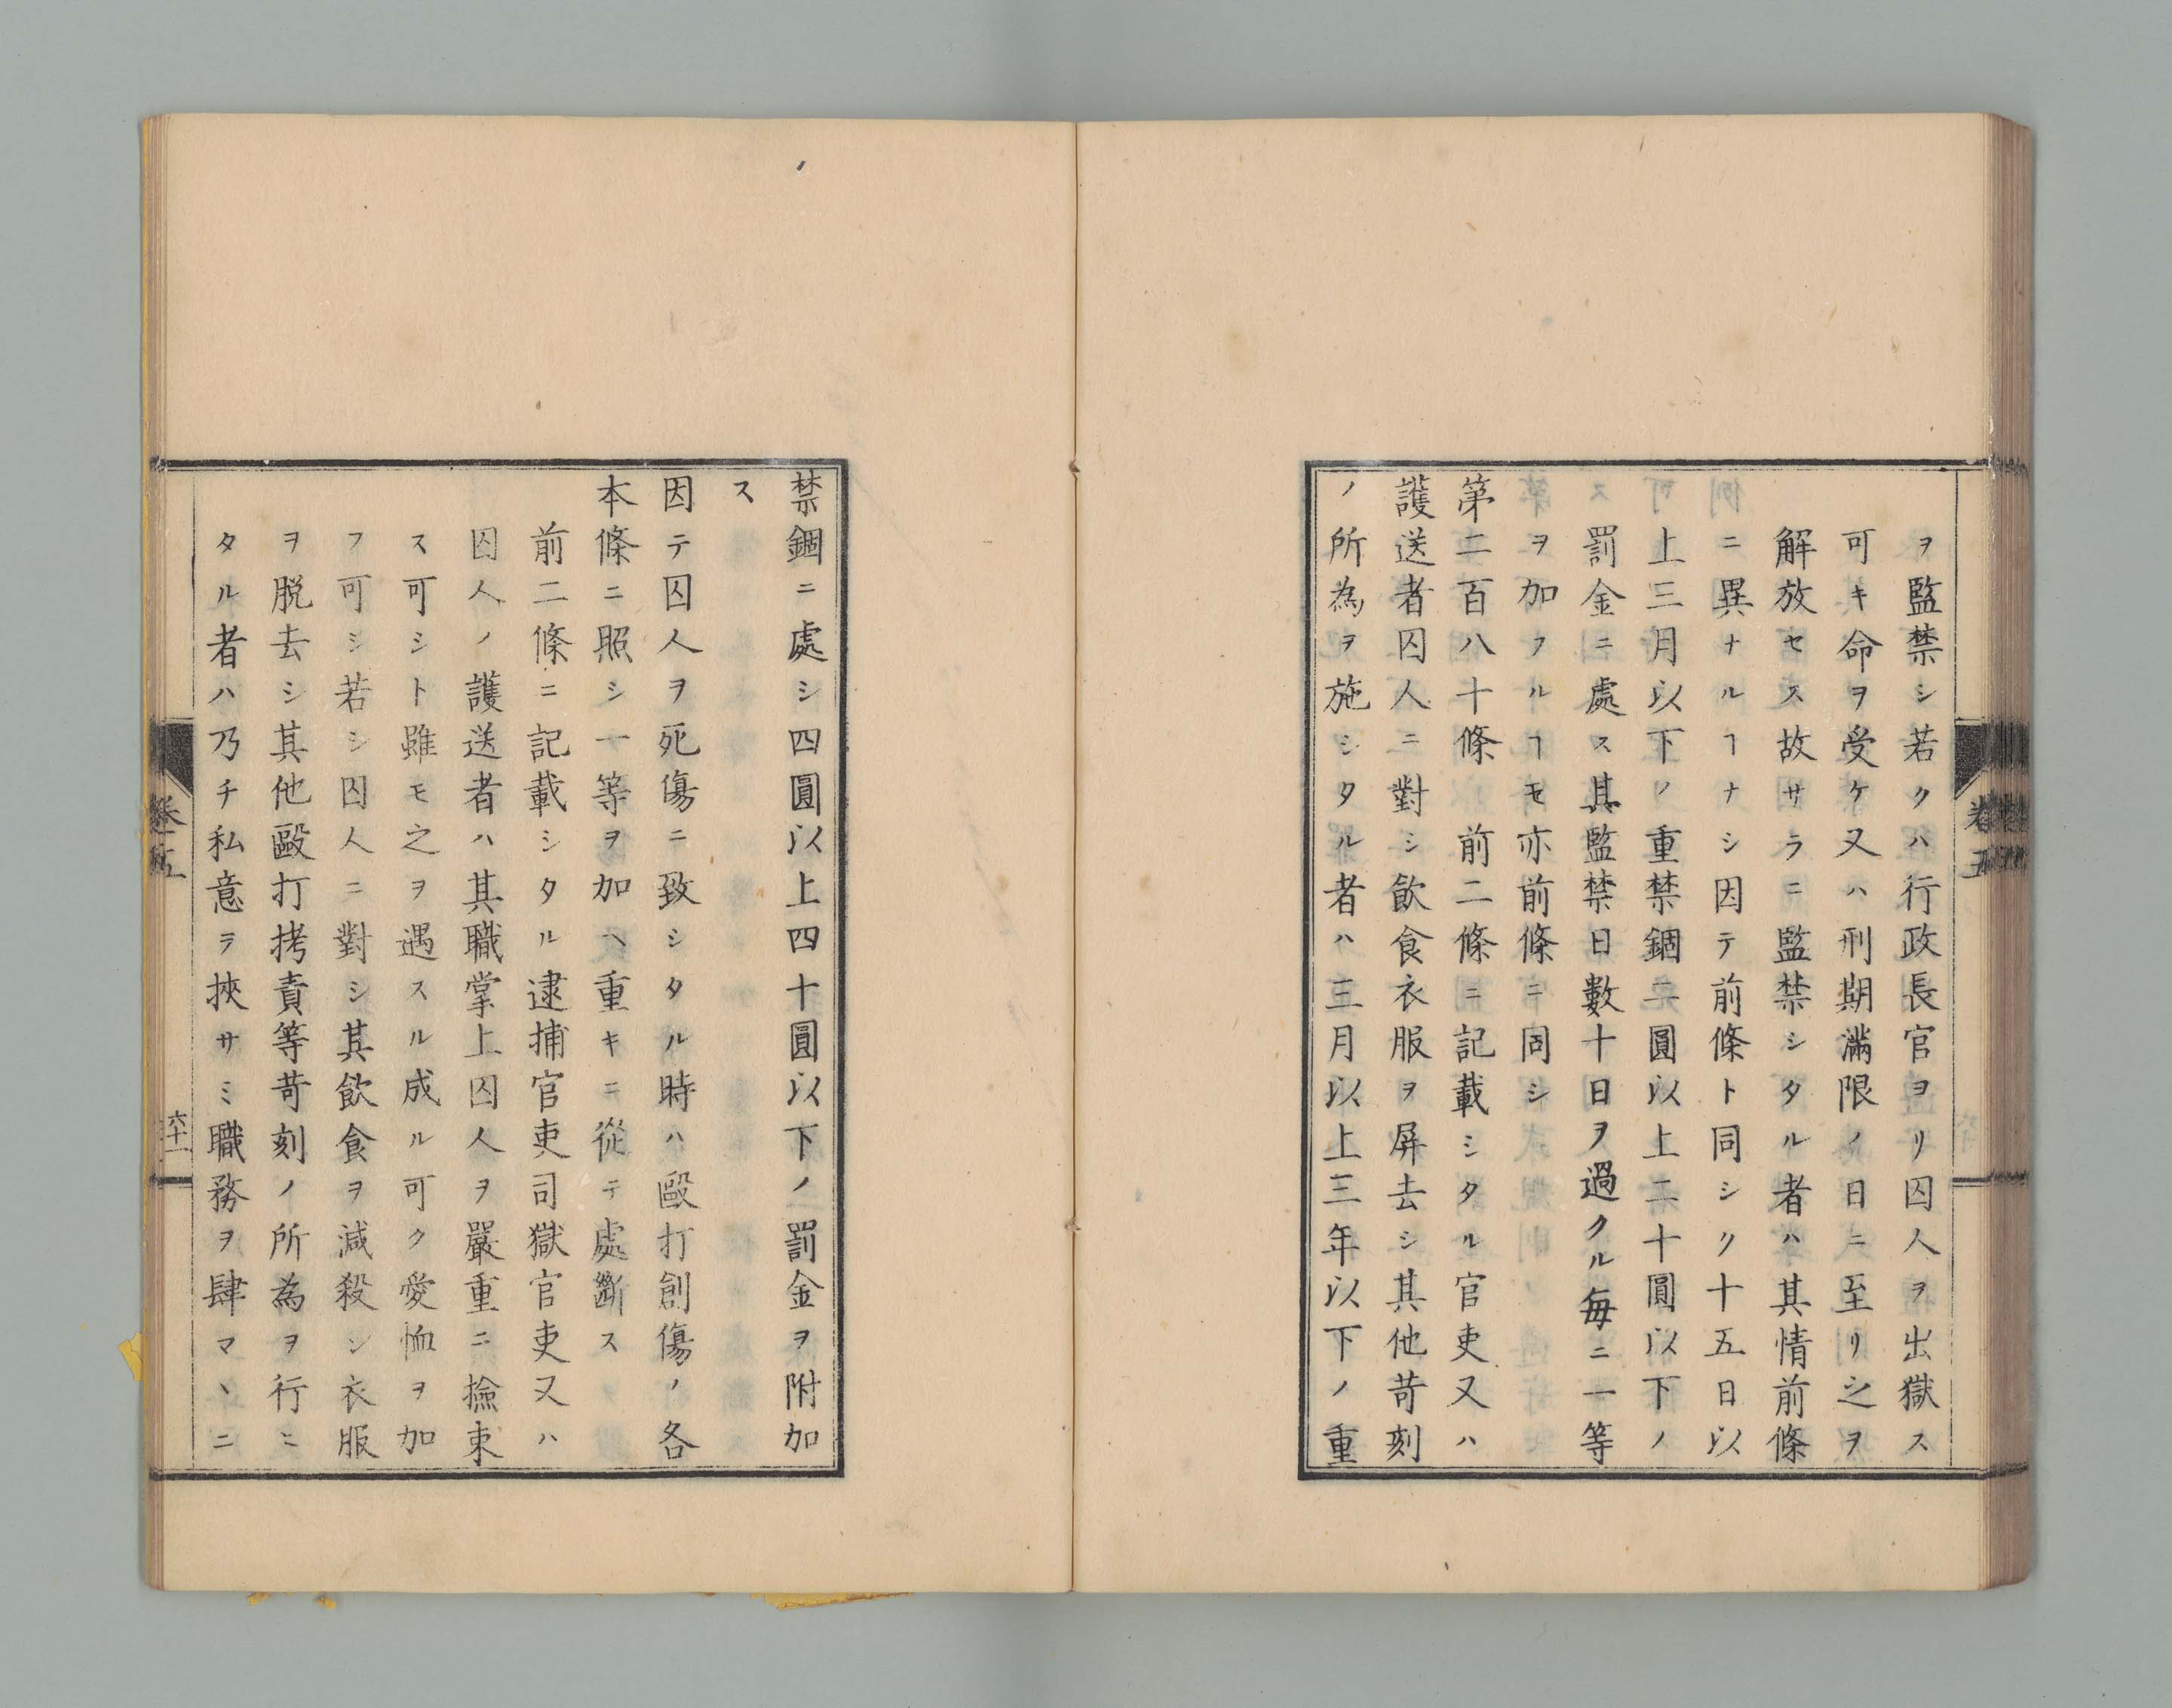 ヲ監禁シ若クハ行政長官ヨリ囚人ヲ出獄ス
可キ命ヲ受ケ又ハ刑期滿限ノ日ニ至リ之ヲ
解放セス故サラニ監禁シタル者ハ其情前條
ニ異ナルヿナシ因テ前條ト同シク十五日以
上三月以下ノ重禁錮二圓以上二十圓以下ノ
罰金ニ處ス其監禁日數十日ヲ過クル毎ニ一等
ヲ加フルヿモ亦前條ニ同シ
第二百八十條 前二條ニ記載シタル官吏又ハ
護送者囚人ニ對シ飮食衣服ヲ屏去シ其他苛刻
ノ所為ヲ施シタル者ハ三月以上三年以下ノ重
卷五
禁錮ニ處シ四圓以上四十圓以下ノ罰金ヲ附加
ス
因テ囚人ヲ死傷ニ致シタル時ハ毆打創傷ノ各
本條ニ照シ一等ヲ加ヘ重キニ從テ處斷ス
前二條ニ記載シタル逮捕官吏司獄官吏又ハ
囚人ノ護送者ハ其職掌上囚人ヲ嚴重ニ撿束
ス可シト雖モ之ヲ遇スル成ル可ク愛恤ヲ加
フ可シ若シ囚人ニ對シ其飮食ヲ減殺シ衣服
ヲ脱去シ其他毆打拷責等苛刻ノ所為ヲ行ヒ
タル者ハ乃チ私意ヲ挾サミ職務ヲ肆マヽニ
卷五
六十一